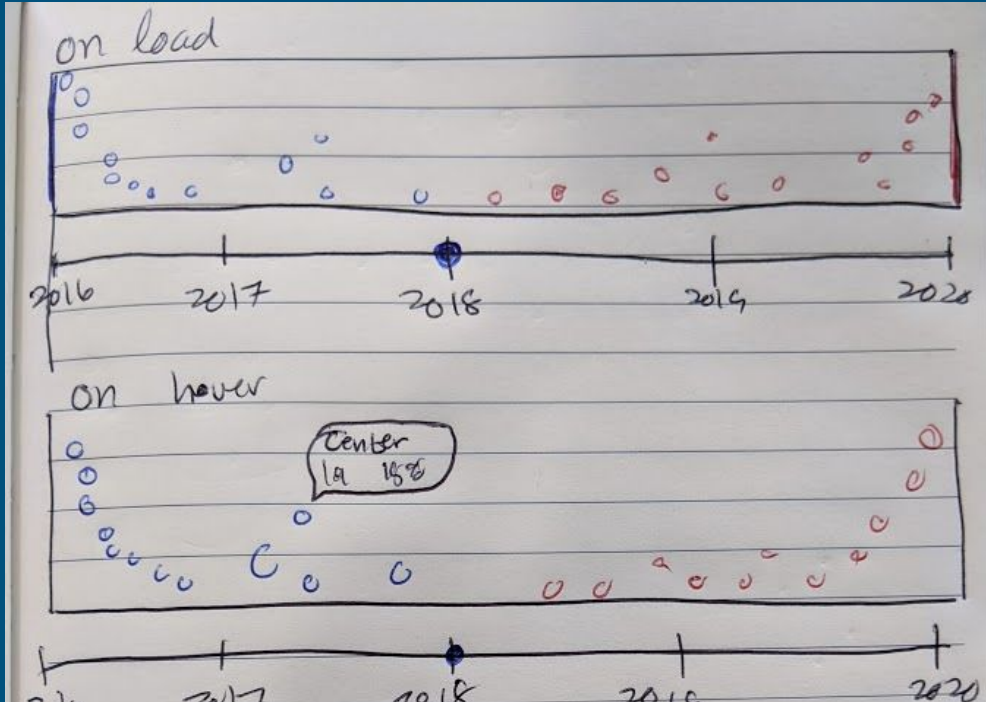 on load
2016 2017 2018 2019 2020
on hover
Center
2017 2018 2019 2020